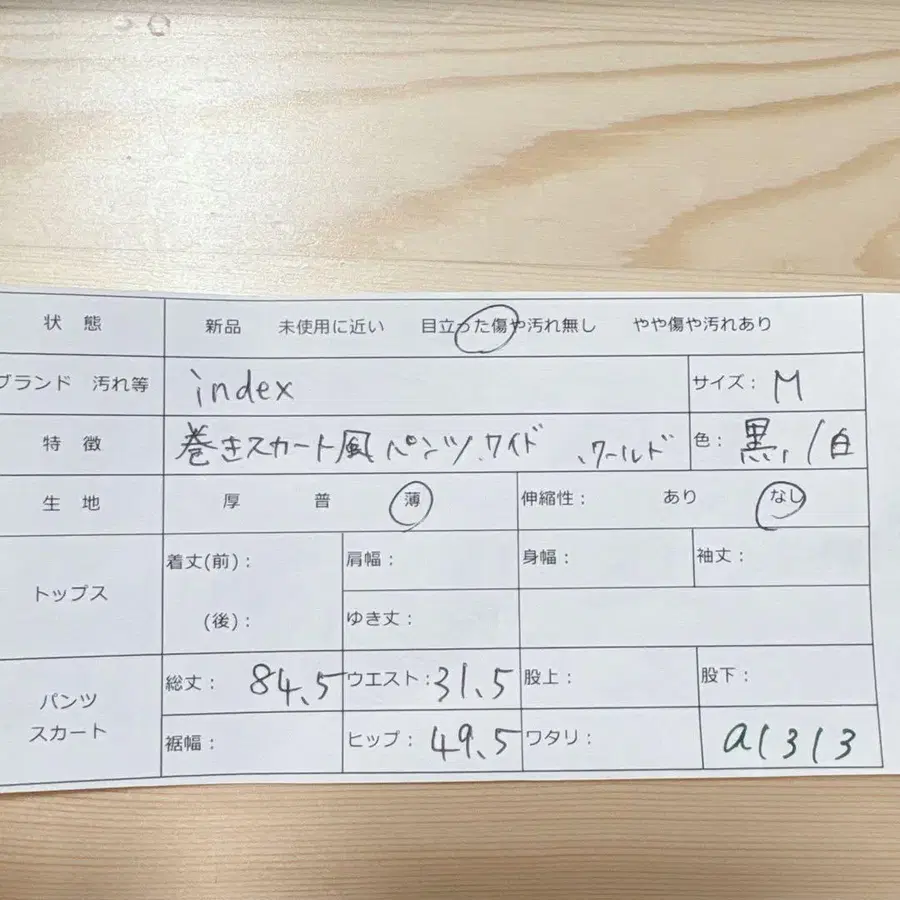 状 態 新品 未使用に近い 目立った傷や汚れ無し やや傷や汚れあり
ブランド 汚れ等 index サイズ： M
特 徴 巻きスカート風パンツ、ワイド 、ワールド 色： 黒、/白
生 地 厚 普 薄 伸縮性： あり なし
トップス 着丈(前)： 肩幅： 身幅： 袖丈：
(後)： ゆき丈：
パンツ スカート 総丈： 84.5 ウエスト： 31.5 股上： 股下：
裾幅： ヒップ： 49.5 ワタリ： a1313